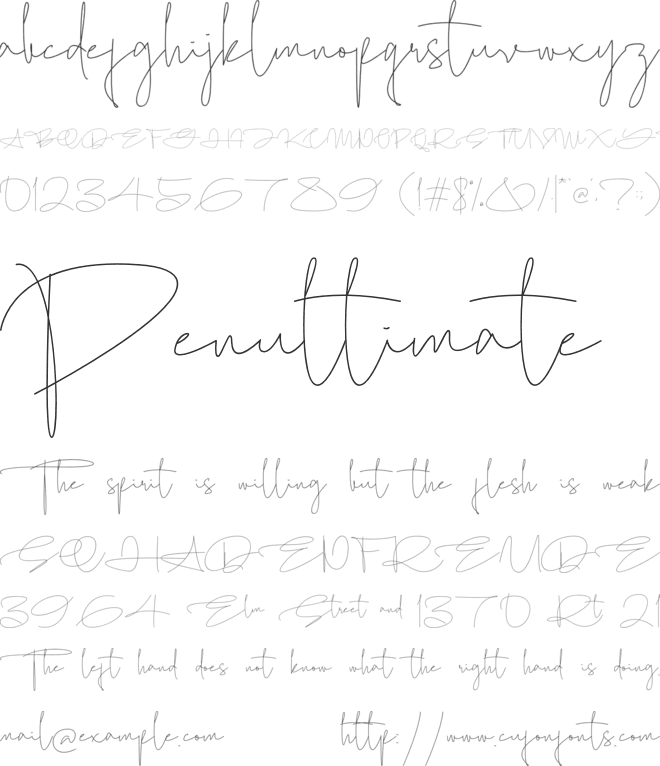 abcdefghijklmnopqrstuvwxyz
ABCDEFGHIJKLMNOPQRSTUVWXYZ
0123456789
Penultimate
The spirit is willing but the flesh is weak
SCHADENFREUDE
3964 Elm Street and 1370 Rt 21
The left hand does not know what the right hand is doing.
mail@example.com http://www.cufonfonts.com